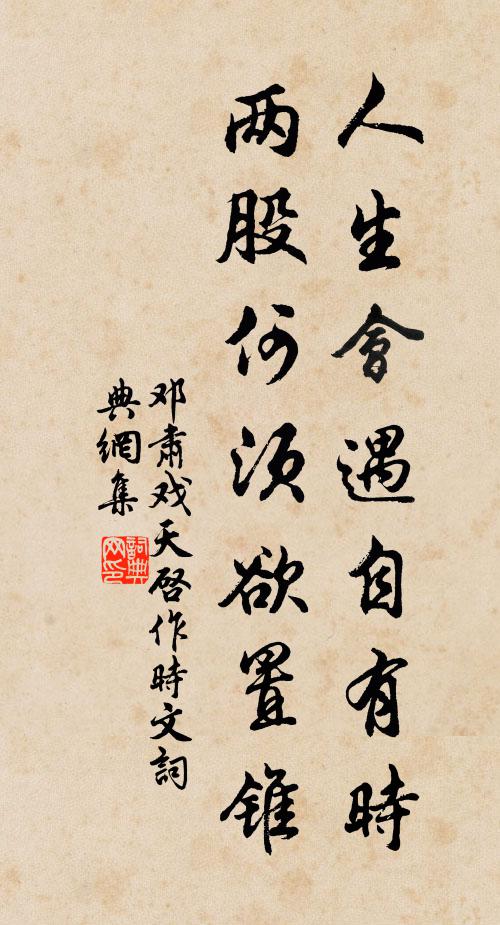 人生會遇自有時
两股何須欲置錐
邓肅戏天啓作時文詞
典網集
詞典網印